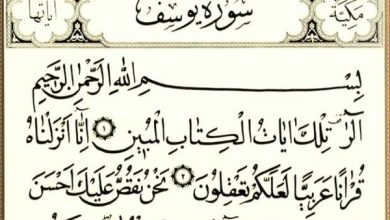 مكية سورة يوسف آياتها
بِسْمِ اللهِ الرَّحْمٰنِ الرَّحِيمِ
الٓرٰ تِلْكَ اٰيَاتُ الْكِتَابِ الْمُبِينِ ١ اِنَّآ اَنْزَلْنَاهُ
قُرْاٰنًا عَرَبِيًّا لَعَلَّكُمْ تَعْقِلُونَ ٢ نَحْنُ نَقُصُّ عَلَيْكَ اَحْسَنَ